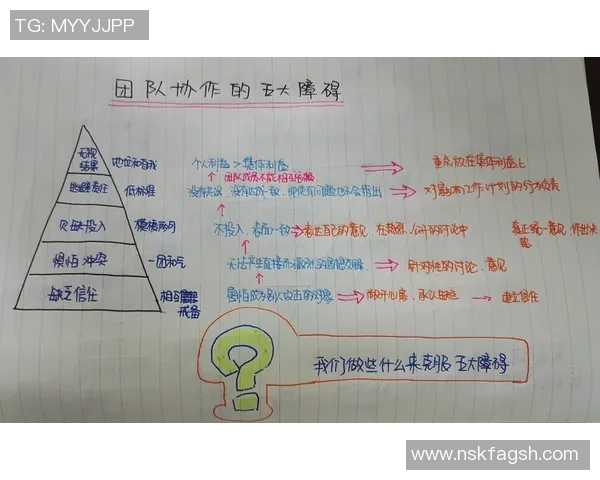 TG: MYYJJPP
团队协作的五大障碍
无视结果 地位和自我 个人利益 > 集体利益 重点放在集体利益上
逃避责任 低标准
没有共识、没有达成一致,即使有问题也不会指出 对影响工作计划的行为负责
欠缺投入 模棱两可 不投入、表面一致 表达自己的意见,在激烈、公开的讨论中 真正统一意见,作出决策
惧怕冲突 一团和气 无法产生直接而激烈的思想交锋 针对性的讨论、意见
缺乏信任 相互戒备 害怕成为别人攻击的对象 敞开心扉、承认缺点 建立信任
我们做些什么来克服五大障碍
www.nskfagsh.com